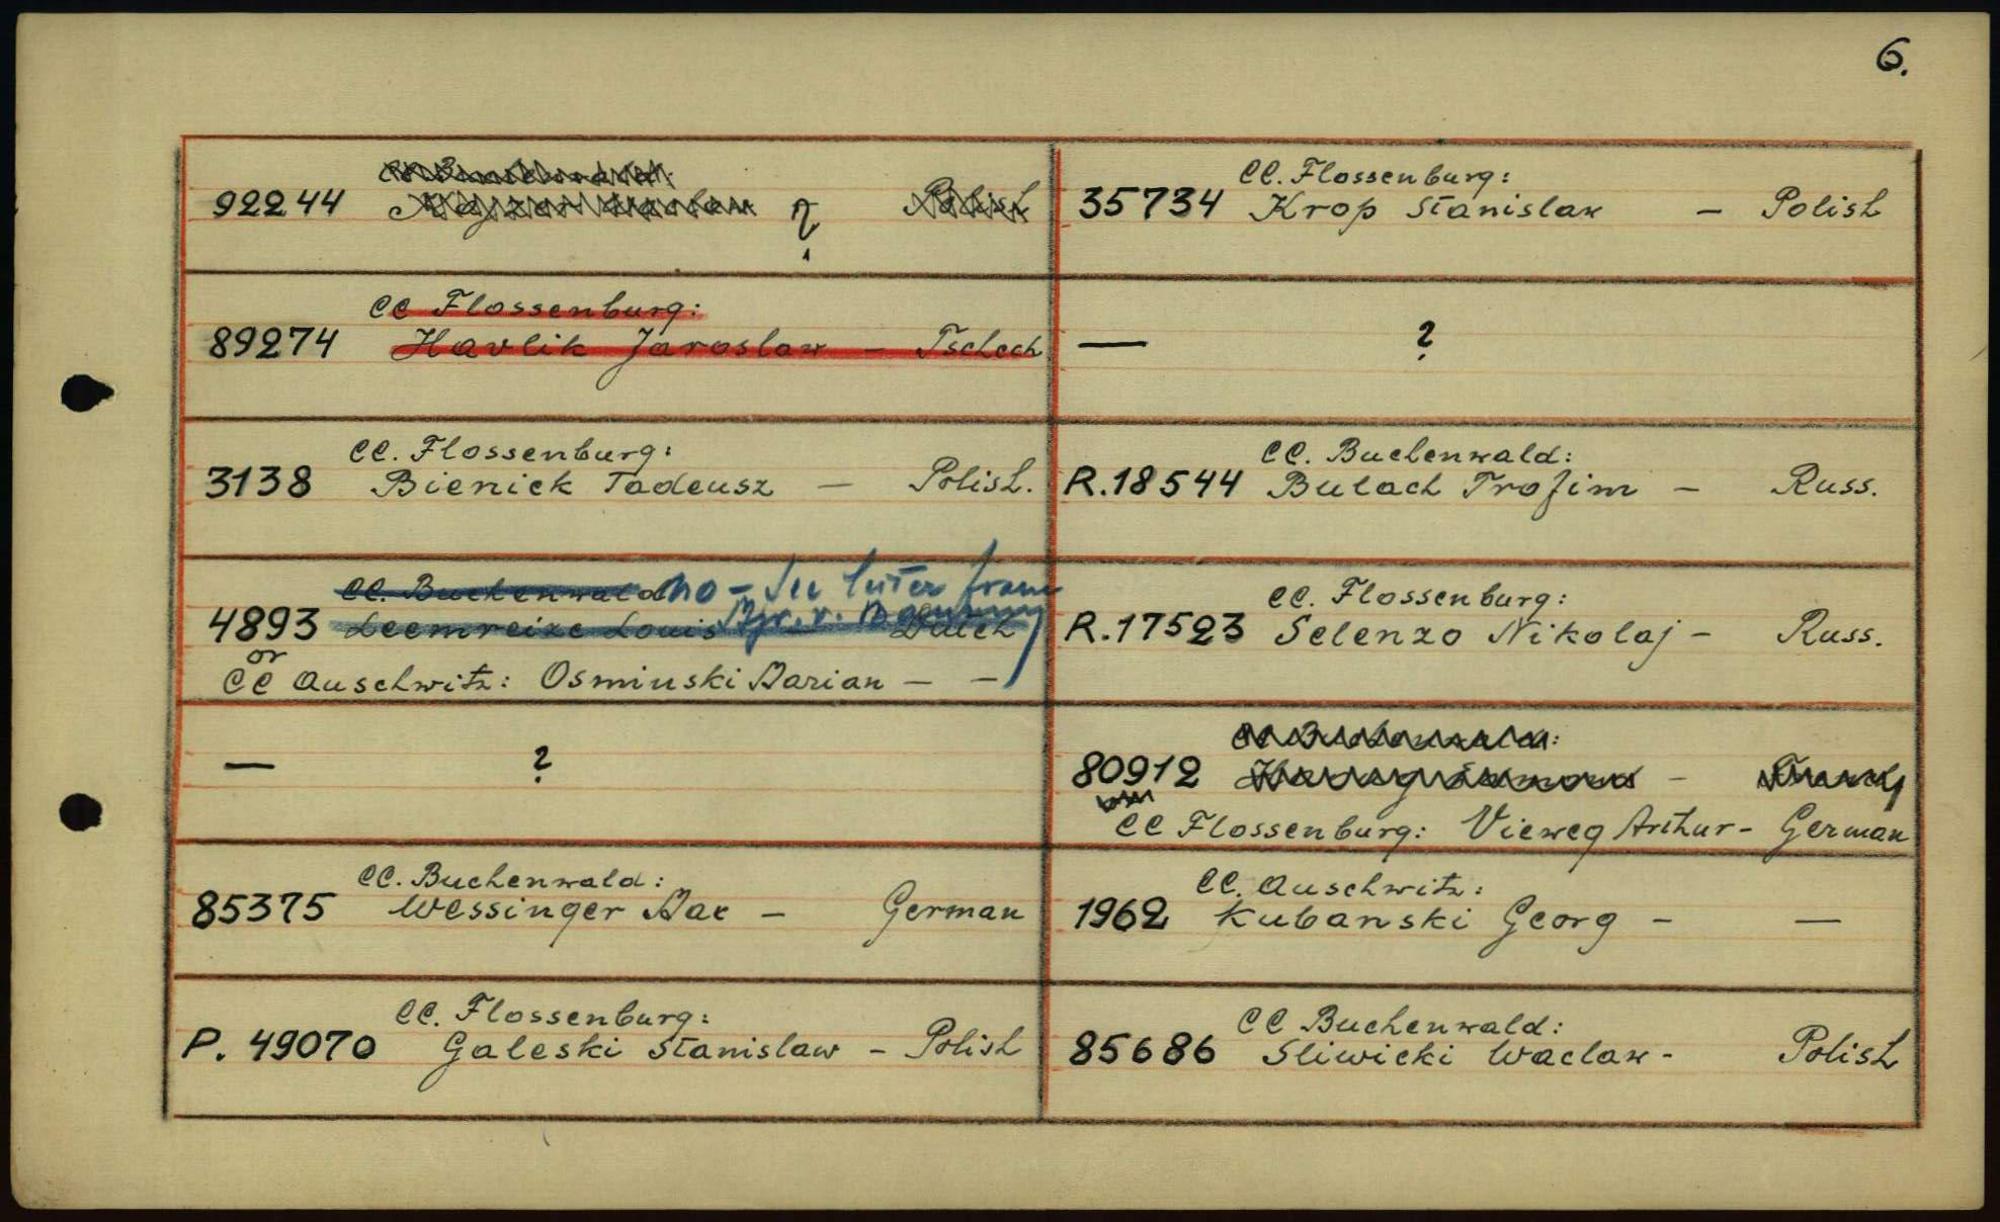 6.
92244 ?
35734 CC. Flossenburg:
Krop Stanislaw – Polish
CC Flossenburg:
89274 Havlik Jaroslaw – Tschech
— ?
CC. Flossenburg:
3138 Bieniek Tadeusz – Polish.
CC. Buchenwald:
R.18544 Bulach Trofim – Russ.
CC. Buchenwald no – See letter from
4893 Leemreize Louis Dutch
or
CC Auschwitz: Osminski Marian – –
CC. Flossenburg:
R.17523 Selenzo Nikolaj – Russ.
— ?
80912 –
CC Flossenburg: Vieweg Arthur – German
CC. Buchenwald:
85375 Wessinger Max – German
CC. Auschwitz:
1962 Kubanski Georg – —
CC. Flossenburg:
P. 49070 Galeski Stanislaw – Polish
CC Buchenwald:
85686 Sliwicki Waclaw - Polish